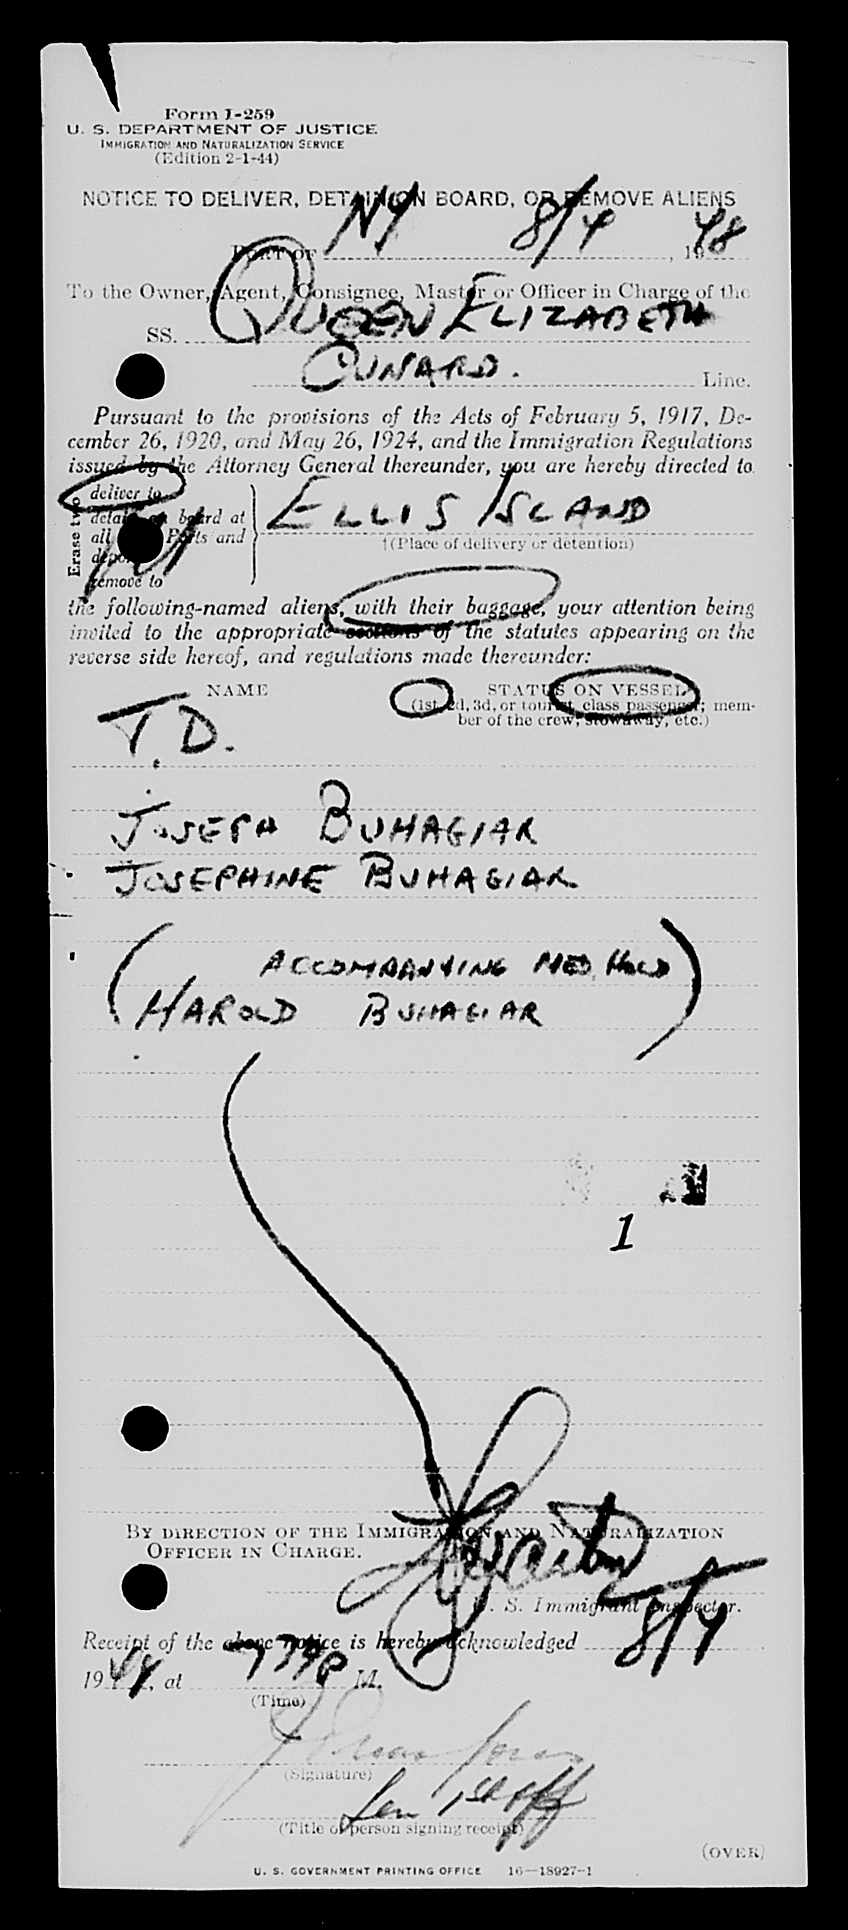 Form I-259
U. S. DEPARTMENT OF JUSTICE
IMMIGRATION AND NATURALIZATION SERVICE
(Edition 2-1-44)
NOTICE TO DELIVER, DETAIN ON BOARD, OR REMOVE ALIENS
PORT OF NY 8/4, 1948
To the Owner, Agent, Consignee, Master or Officer in Charge of the
SS. QUEEN ELIZABETH
CUNARD. Line.
Pursuant to the provisions of the Acts of February 5, 1917, De-
cember 26, 1920, and May 26, 1924, and the Immigration Regulations
issued by the Attorney General thereunder, you are hereby directed to
Erase two
deliver to
detain on board at
all Ports and
remove to
ELLIS ISLAND
†(Place of delivery or detention)
the following-named aliens, with their baggage, your attention being
invited to the appropriate sections of the statutes appearing on the
reverse side hereof, and regulations made thereunder:
NAME STATUS ON VESSEL
(1st, 2d, 3d, or tourist class passenger; mem-
ber of the crew; stowaway, etc.)
T.D.
JOSEPH BUHAGIAR
JOSEPHINE BUHAGIAR
(ACCOMPANYING MED. HOLD
HAROLD BUHAGIAR)
1
BY DIRECTION OF THE IMMIGRATION AND NATURALIZATION
OFFICER IN CHARGE.
U. S. Immigrant Inspector.
Receipt of the above notice is hereby acknowledged 8/4
19 , at 739P M.
(Time)
(Signature)
(Title of person signing receipt)
(OVER)
U. S. GOVERNMENT PRINTING OFFICE 16—18927-1